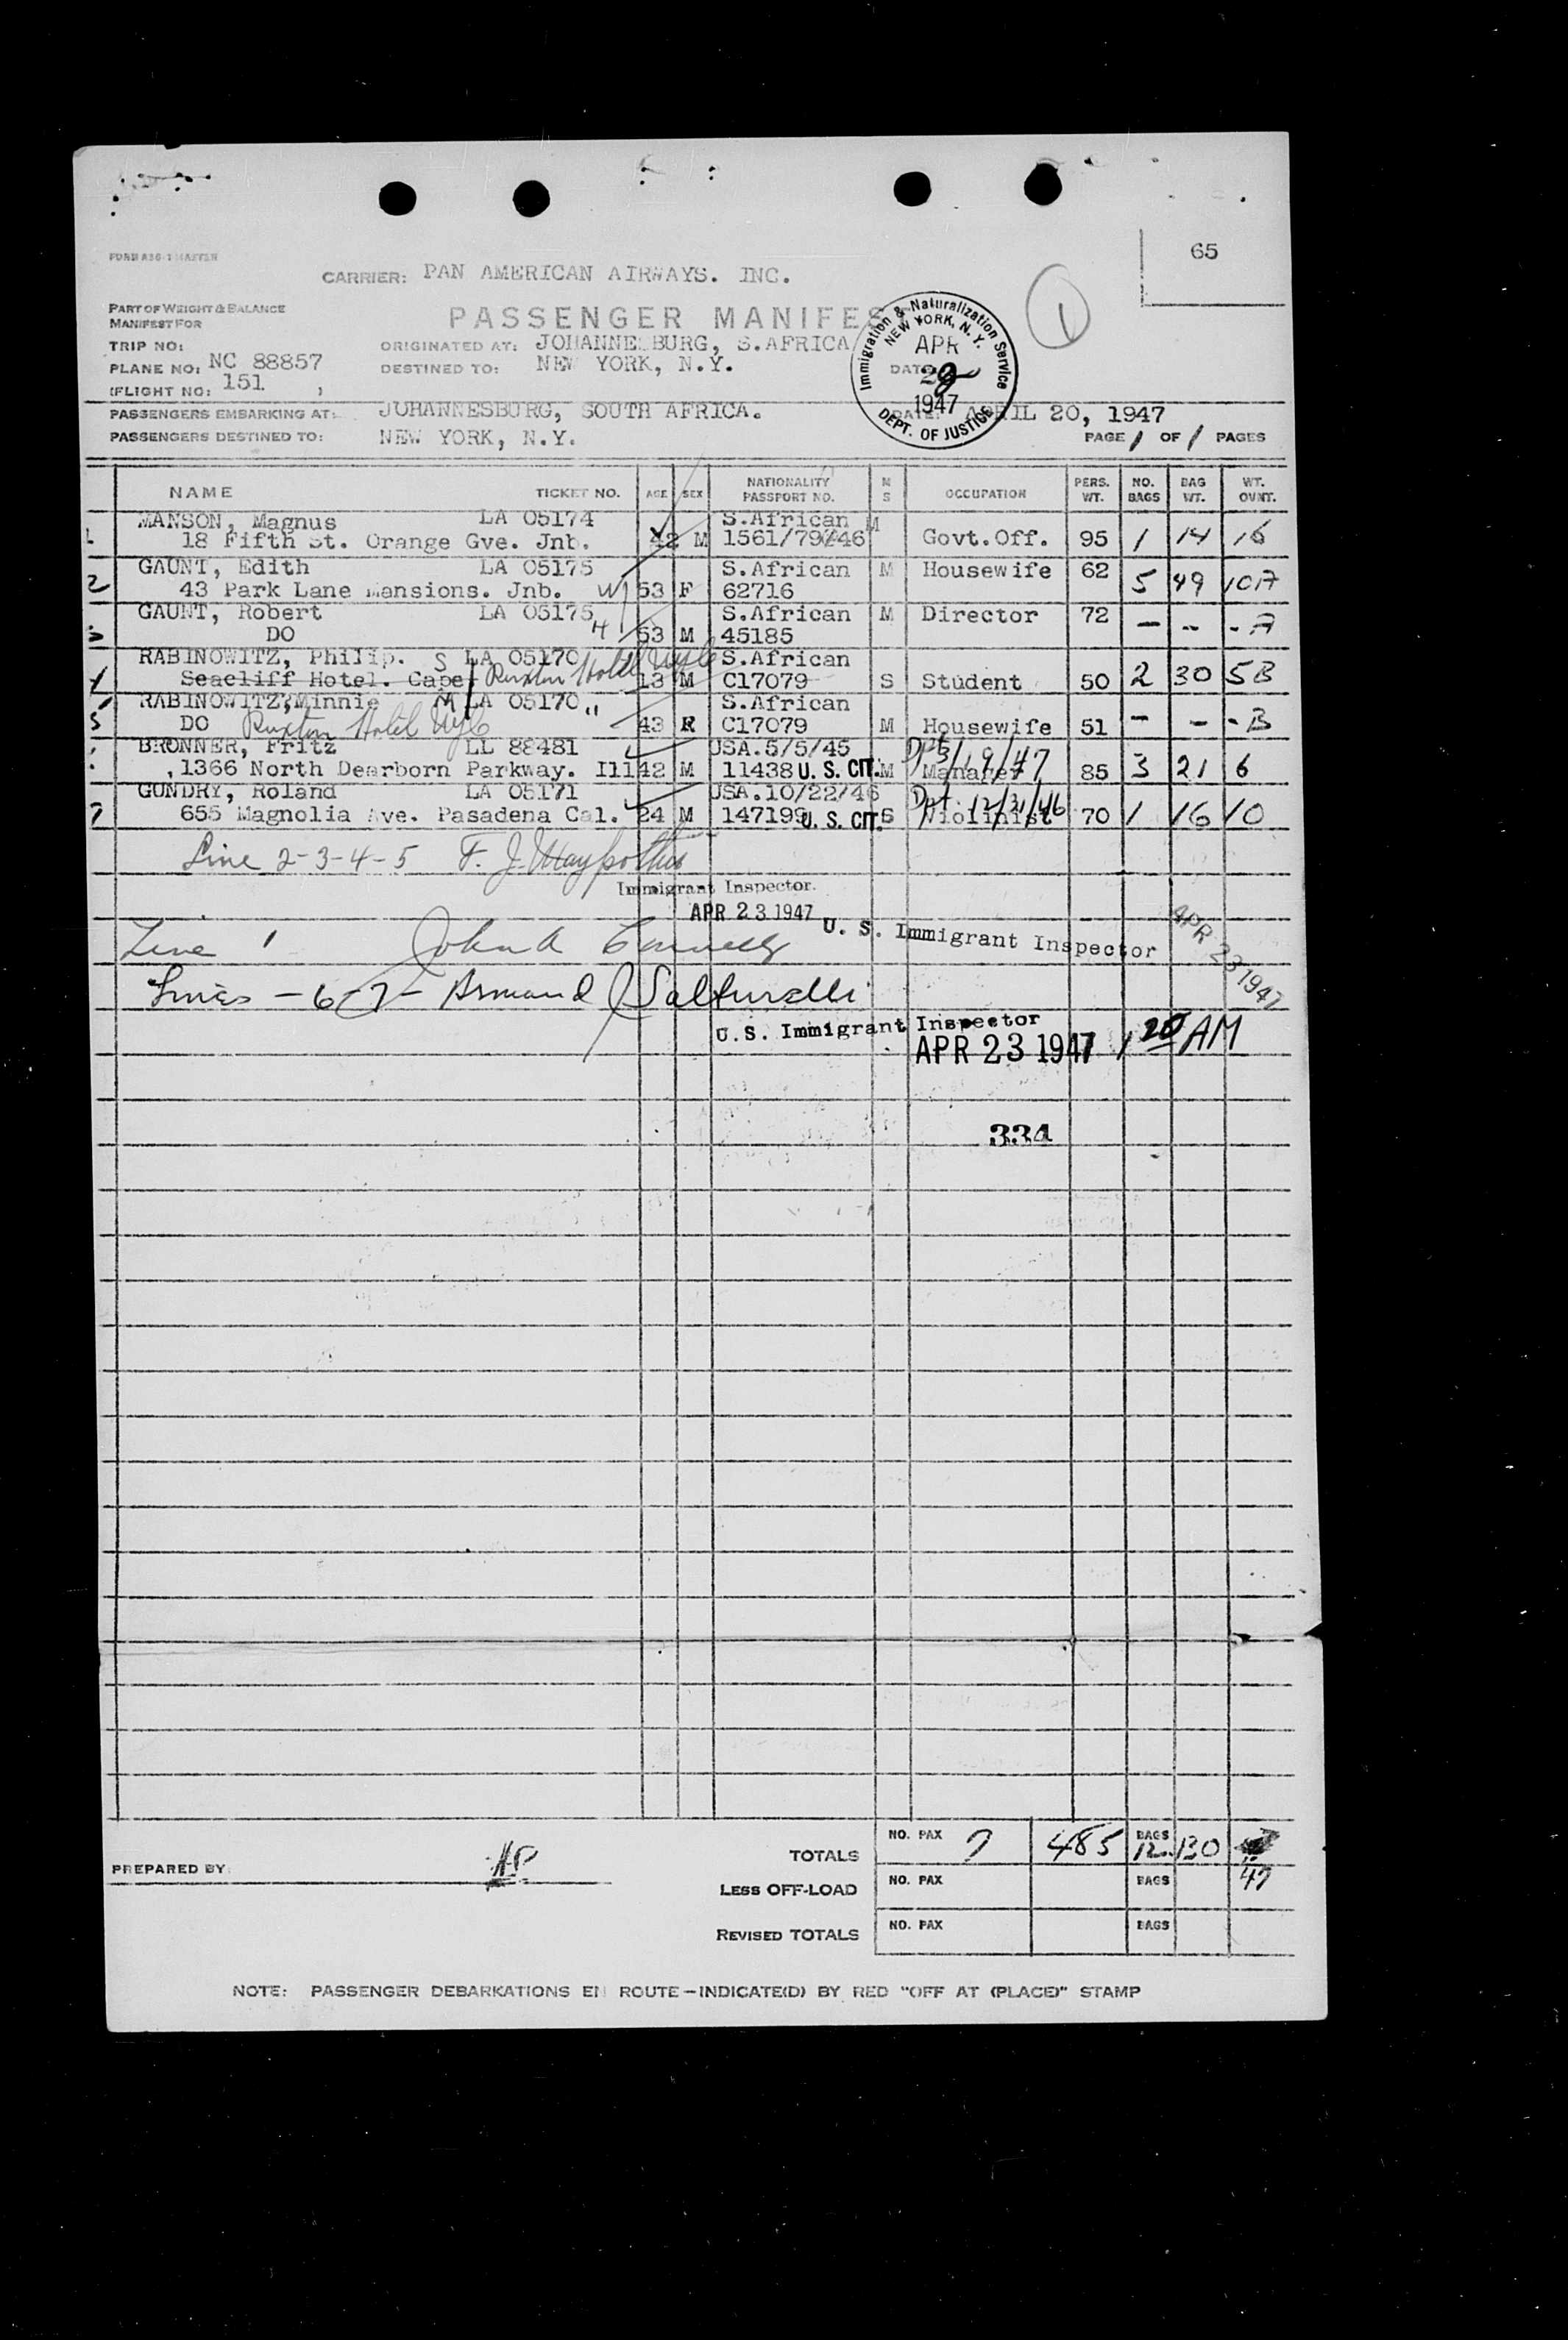 65
FORM ASG-1 MASTER
CARRIER: PAN AMERICAN AIRWAYS. INC.
PART OF WEIGHT & BALANCE
MANIFEST FOR
PASSENGER MANIFES
1
TRIP NO:
ORIGINATED AT: JOHANNESBURG, S.AFRICA
PLANE NO: NC 88857
DESTINED TO: NEW YORK, N.Y.
(FLIGHT NO: 151 )
Immigration & Naturalization Service
NEW YORK, N. Y.
APR
1947
DEPT. OF JUSTICE
PASSENGERS EMBARKING AT: JOHANNESBURG, SOUTH AFRICA. DATE: APRIL 20, 1947
PASSENGERS DESTINED TO: NEW YORK, N.Y. PAGE 1 OF 1 PAGES
NAME TICKET NO. AGE SEX NATIONALITY PASSPORT NO. M S OCCUPATION PERS. WT. NO. BAGS BAG WT. WT. OVNT.
MANSON, Magnus LA 05174 S.African M
1 18 Fifth St. Orange Gve. Jnb. 42 M 1561/79/46 Govt.Off. 95 1 14 16
GAUNT, Edith LA 05175 S.African M Housewife 62
2 43 Park Lane Mansions. Jnb. W 53 F 62716 5 49 10A
GAUNT, Robert LA 05175 S.African M Director 72
3 DO H 53 M 45185 - -- - A
RABINOWITZ, Philip. S LA 05170 S.African
4 Seacliff Hotel. Cape. Ruxton Hotel NYC 13 M C17079 S Student 50 2 30 5B
RABINOWITZ, Minnie M LA 05170 " S.African
5 DO Ruxton Hotel NYC 43 F C17079 M Housewife 51 - - - B
BRONNER, Fritz LL 88481 USA.5/5/45 Dpt 3/19/47
1366 North Dearborn Parkway. Ill 42 M 11438 U. S. CIT. M Manager 85 3 21 6
GUNDRY, Roland LA 05171 USA.10/22/46 Dpt. 12/31/46
7 655 Magnolia Ave. Pasadena Cal. 24 M 147199 U. S. CIT. S Violinist 70 1 16 10
Line 2-3-4-5 F. J.
Immigrant Inspector.
APR 23 1947
Line 1 John A U. S. Immigrant Inspector APR 23 1947
Lines - 6-7 - Armand J
U.S. Immigrant Inspector
APR 23 1947 1 20 AM
334
TOTALS NO. PAX 7 485 BAGS 12 130
PREPARED BY:
LESS OFF-LOAD NO. PAX BAGS 47
REVISED TOTALS NO. PAX BAGS
NOTE: PASSENGER DEBARKATIONS EN ROUTE—INDICATE(D) BY RED "OFF AT (PLACE)" STAMP